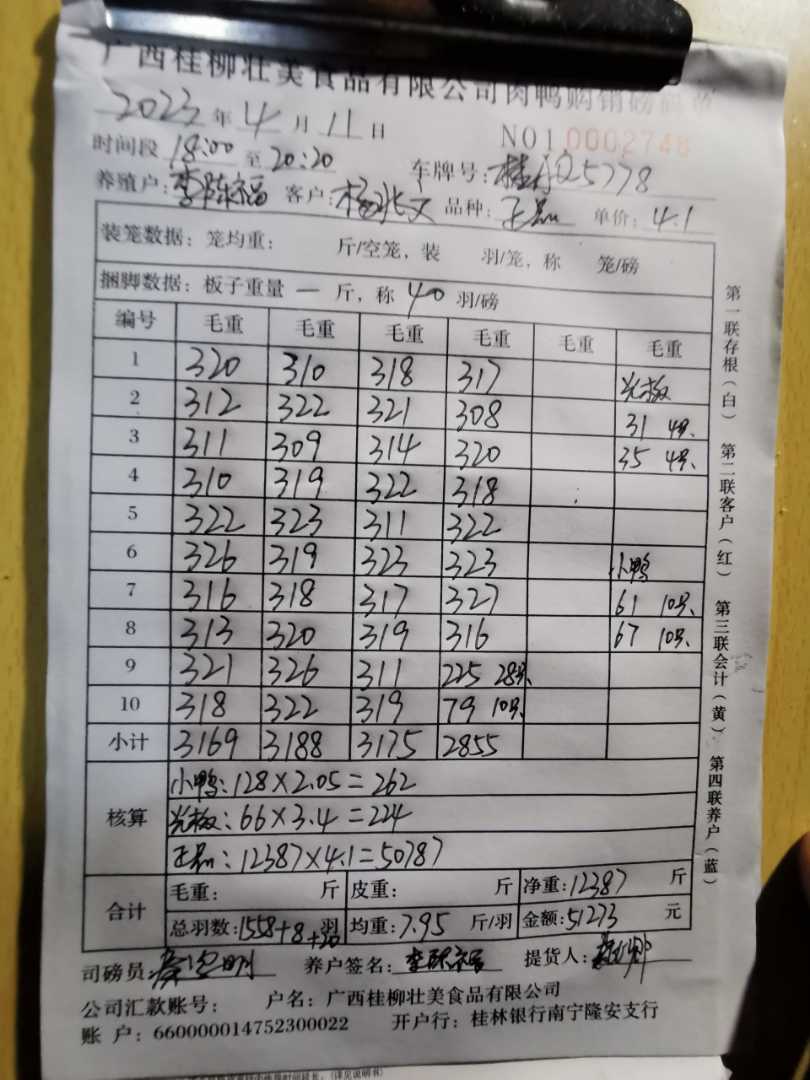 广西桂柳壮美食品有限公司肉鸭购销磅码单
2023年4月11日 NO10002748
时间段18:00至20:20 车牌号:桂A Q5778
养殖户:李陈福 客户: 品种:正品 单价:4.1
装笼数据:笼均重: 斤/空笼,装 羽/笼,称 笼/磅
捆脚数据:板子重量 一 斤,称 40 羽/磅
编号 毛重 毛重 毛重 毛重 毛重 毛重
1 320 310 318 317 光板
2 312 322 321 308 31 4只
3 311 309 314 320 35 4只
4 310 319 322 318
5 322 323 311 322
6 326 319 323 323 小鸭
7 316 318 317 327 61 10只
8 313 320 319 316 67 10只
9 321 326 311 225 28只
10 318 322 319 79 10只
小计 3169 3188 3175 2855
核算 小鸭:128×2.05=262
光板:66×3.4=224
正品:12387×4.1=50787
合计 毛重: 斤 皮重: 斤 净重:12387 斤
总羽数:1558+8+20羽 均重:7.95 斤/羽 金额:51273 元
司磅员: 养户签名: 提货人:
公司汇款账号: 户名:广西桂柳壮美食品有限公司
账 户:660000014752300022 开户行:桂林银行南宁隆安支行
第一联存根(白) 第二联客户(红) 第三联会计(黄) 第四联养户(蓝)
(详见说明书)